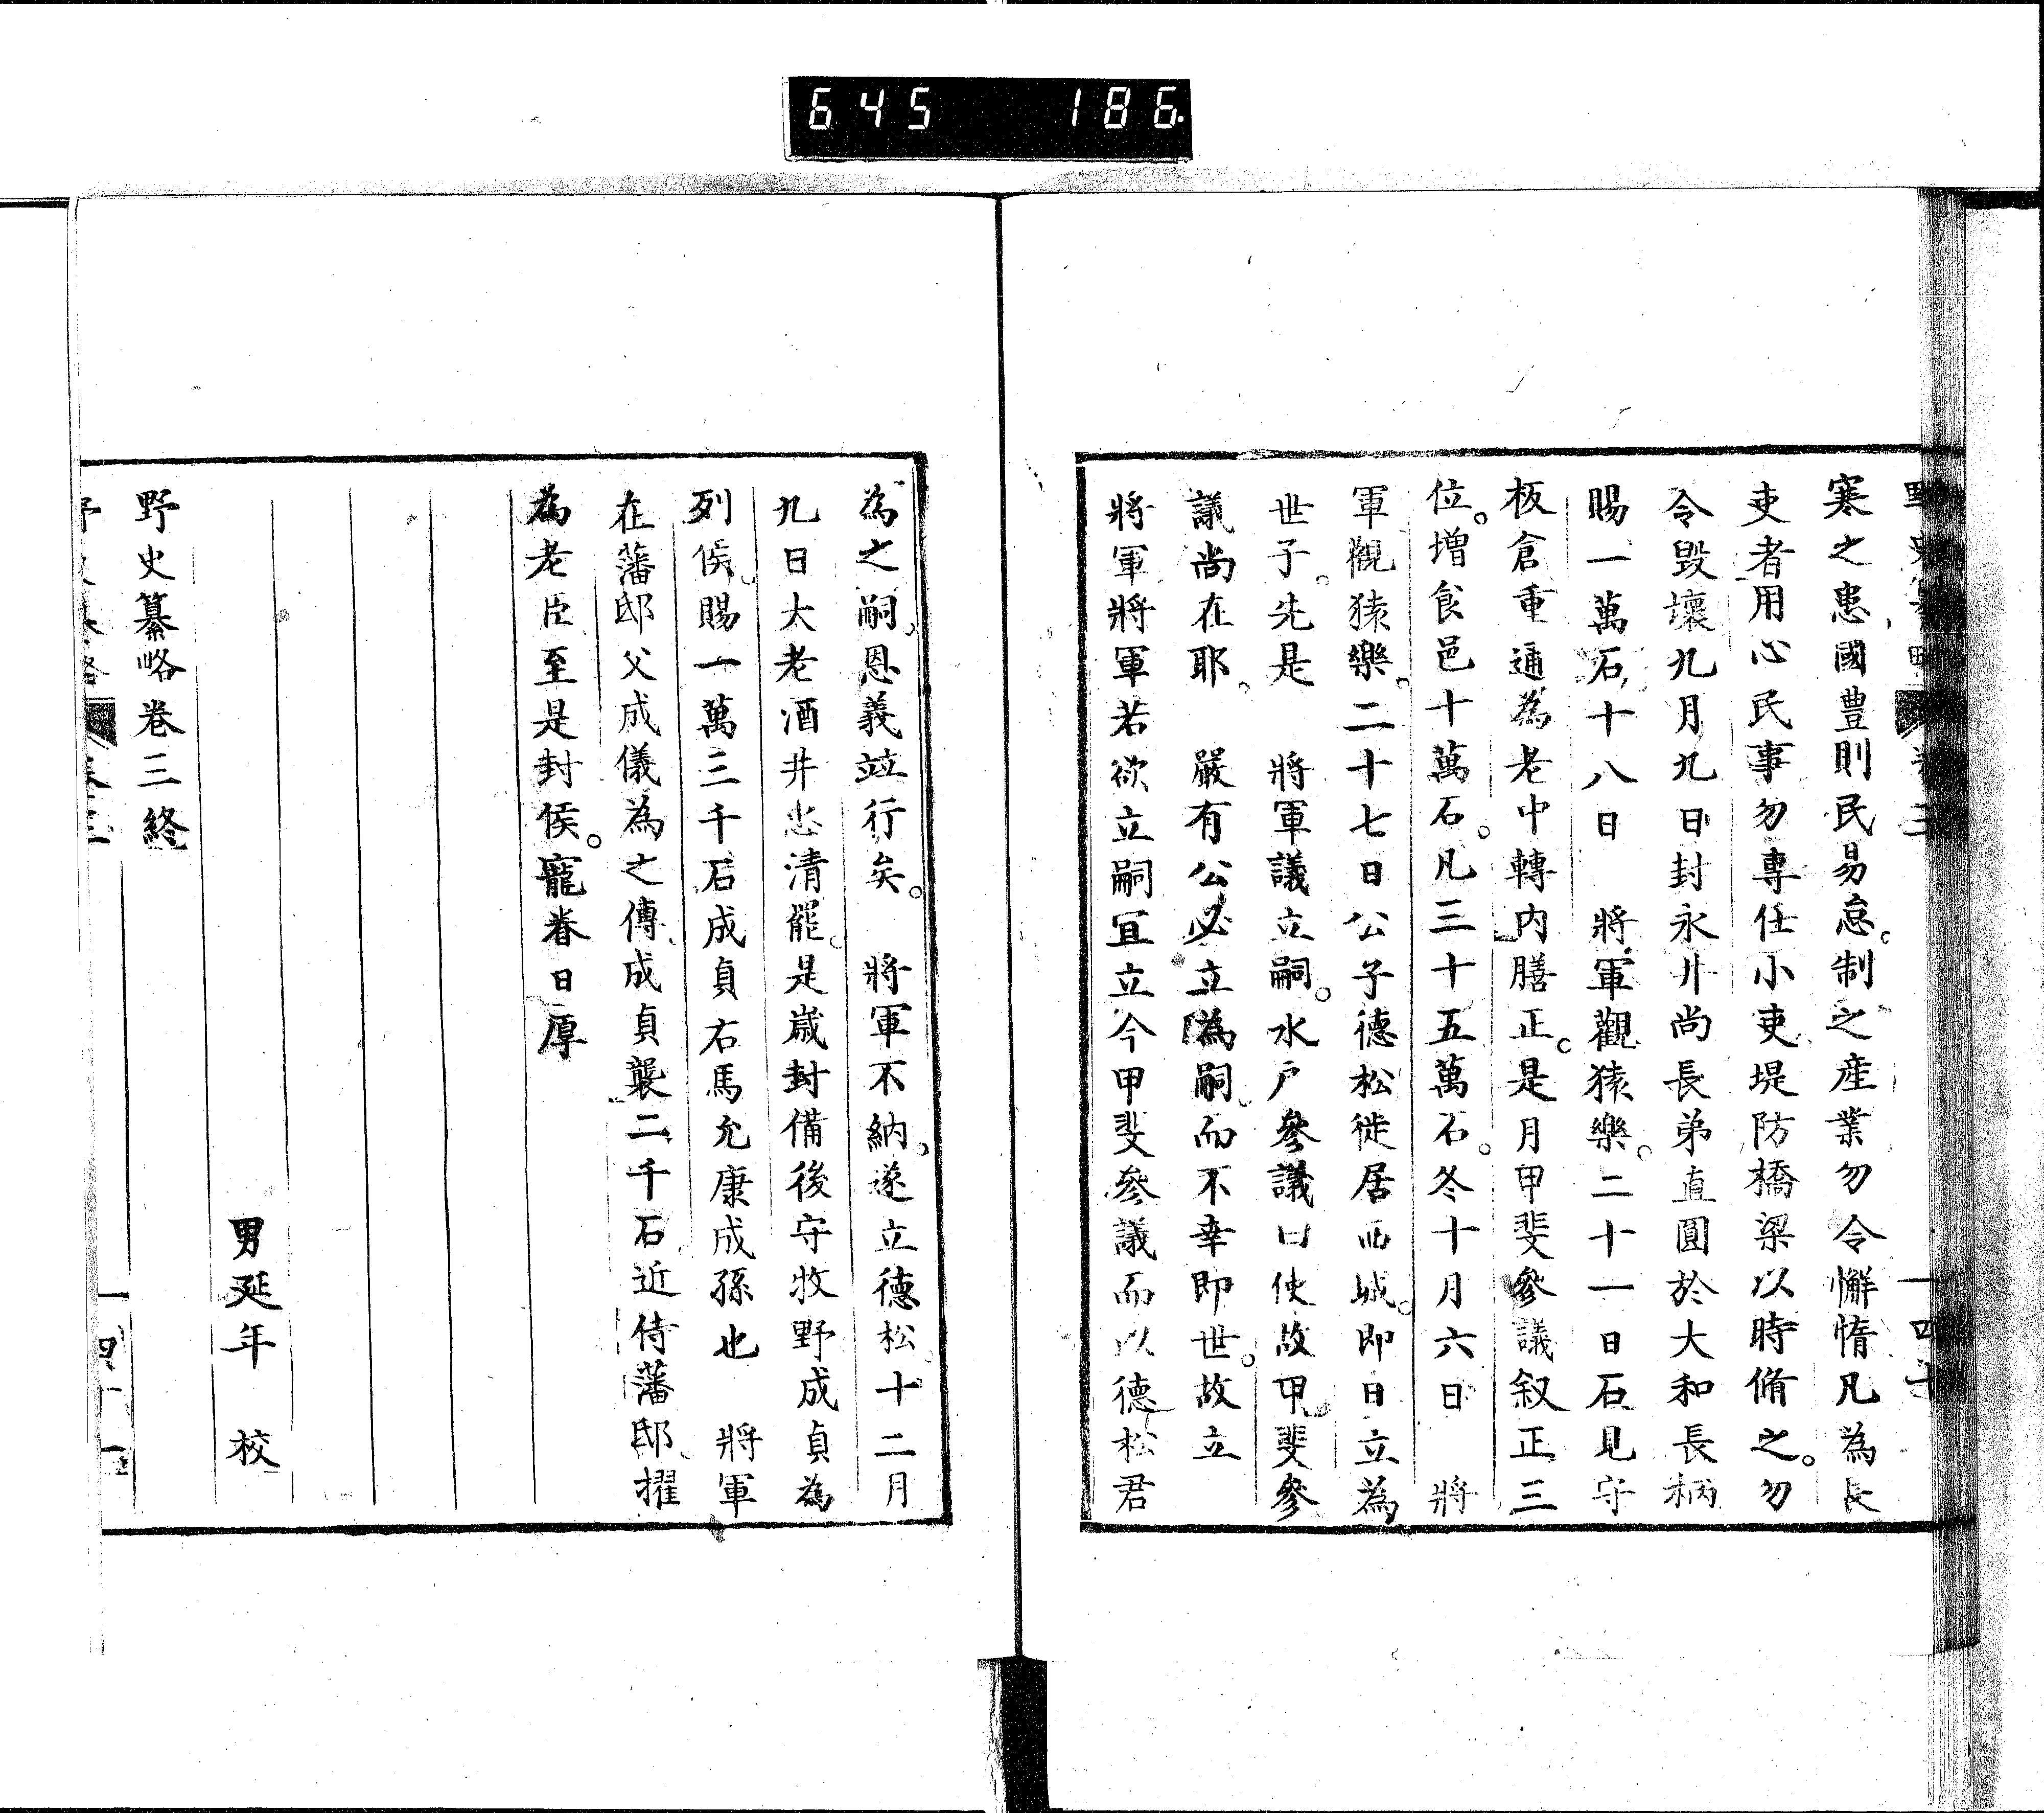 645 186.
寒之患國豊則民易怠。制之產業勿令懈惰凡為長
吏者用心民事勿專任小吏堤防橋梁以時脩之。勿
令毀壞九月九日封永井尚長弟直圓於大和長柄
賜一萬石十八日 將軍觀猿樂。二十一日石見守
板倉重通為老中轉内膳正。是月甲斐參議叙正三
位。增食邑十萬石。凡三十五萬石。冬十月六日 將
軍觀猿樂。二十七日公子德松徙居西城。即日立為
世子。先是 將軍議立嗣。水戶參議曰使故甲斐參
議尚在耶。 嚴有公必立為嗣而不幸即世。故立
將軍將軍若欲立嗣宜立今甲斐參議而以德松君
為之嗣。恩義竝行矣。 將軍不納。遂立德松十二月
九日大老酒井忠清罷。是歲封備後守牧野成貞為
列侯。賜一萬三千石成貞右馬允康成孫也 將軍
在藩邸父成儀為之傅。成貞襲二千石近侍藩邸。擢
為老臣至是封侯。寵眷日厚
男延年 校
野史纂略卷三終